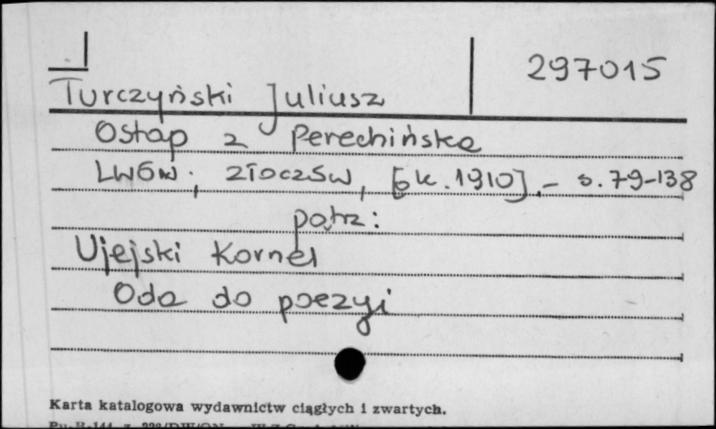 297015
Turczyński Juliusz
Ostap z Perechińska
Lwów, Złoczów, [ok. 1910]. – s. 79-138
patrz:
Ujejski Kornel
Oda do poezyi
Karta katalogowa wydawnictw ciągłych i zwartych.